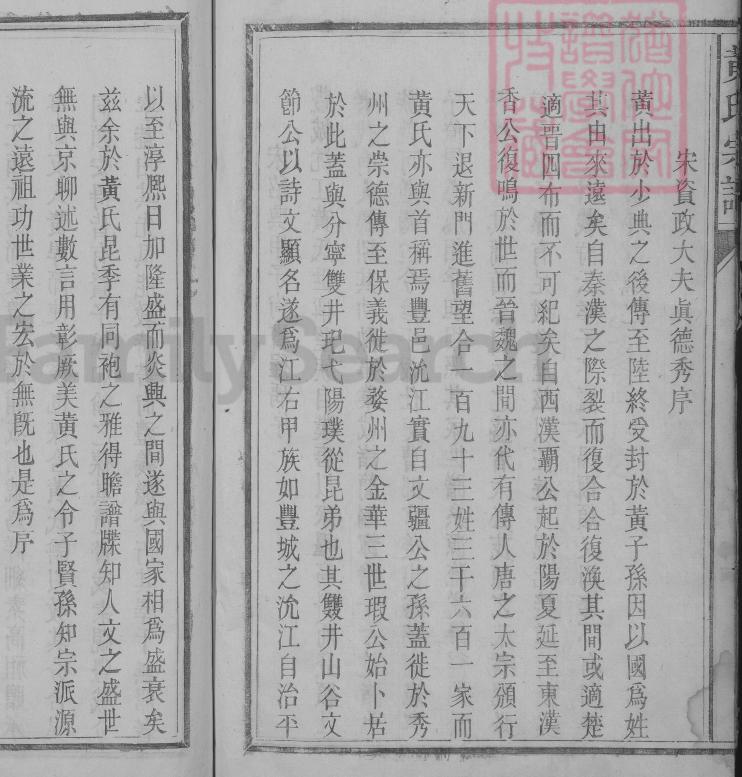 黃氏宗譜
宋資政大夫眞德秀序
黃出於少典之後傳至陸終受封於黃子孫因以國爲姓
其由來遠矣自秦漢之際裂而復合合復渙其間或適楚
適晋四布而不可紀矣自西漢霸公起於陽夏延至東漢
香公復鳴於世而晉魏之間亦代有傳人唐之太宗頒行
天下退新門進舊望合一百九十三姓三千六百一家而
黃氏亦與首稱焉豐邑沇江實自文疆公之孫蓋徙於秀
州之崇德傳至保義徙於婺州之金華三世瑕公始卜居
於此蓋與分寧雙井玘弋陽璞從昆弟也其雙井山谷文
節公以詩文顯名遂爲江右甲族如豐城之沇江自治平
以至淳熈日加隆盛而炎興之間遂與國家相爲盛衰矣
兹余於黃氏昆季有同袍之雅得瞻譜牒知人文之盛世
無與京聊述數言用彰厥美黃氏之令子賢孫知宗派源
流之遠祖功世業之宏於無旣也是爲序
FamilySearch